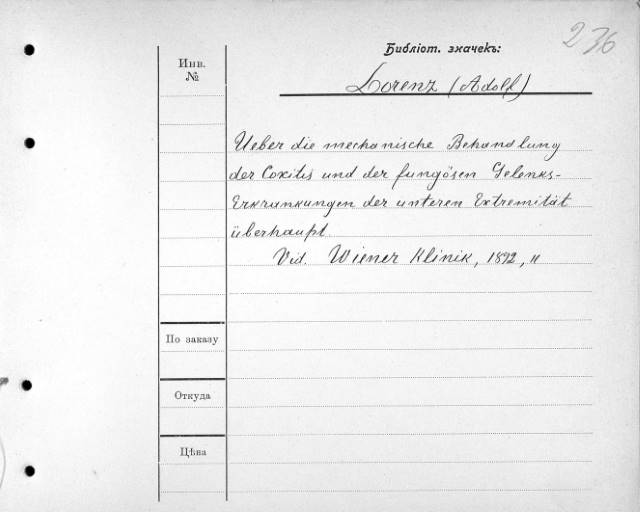 236
Библіот. значекъ:
Инв.
№
Lorenz (Adolf)
Ueber die mechanische Behandlung
der Coxitis und der fungösen Gelenks-
Erkrankungen der unteren Extremität
überhaupt
Vid. Wiener Klinik, 1892, 11
По заказу
Откуда
Цѣна